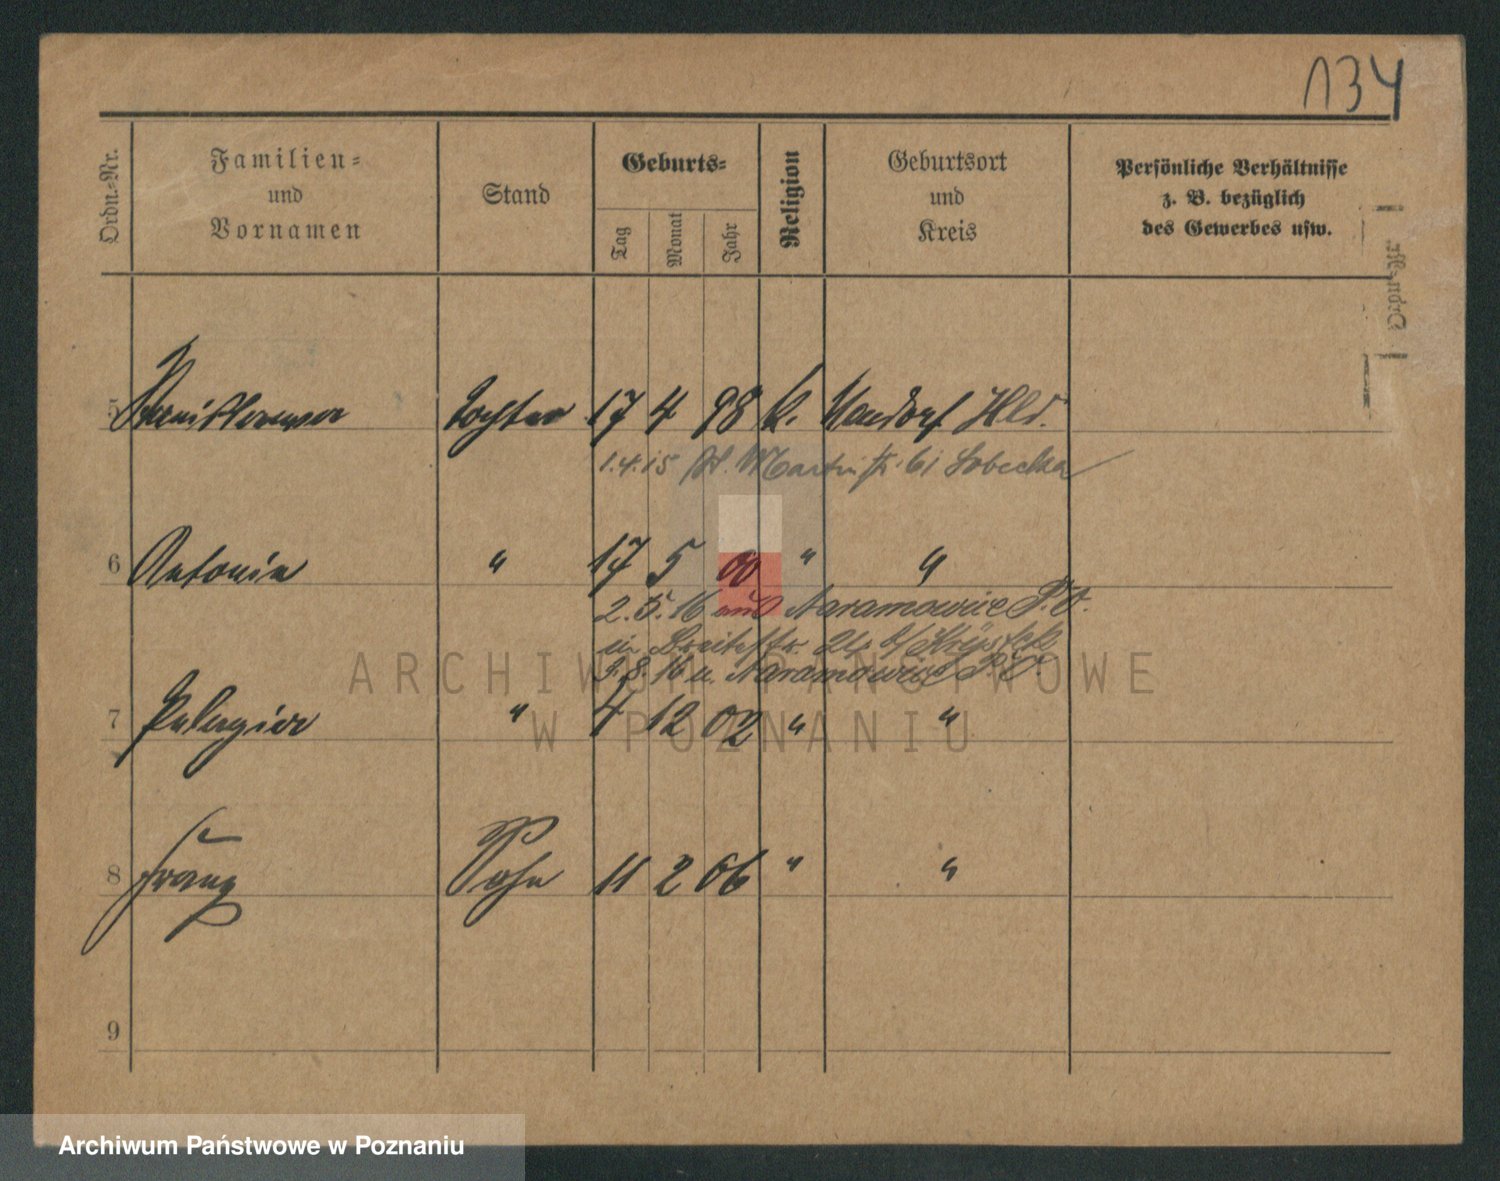 134
Ordn.-Nr.
Familien-
und
Vornamen
Stand
Geburts-
Tag
Monat
Jahr
Religion
Geburtsort
und
Kreis
Persönliche Verhältnisse
z. B. bezüglich
des Gewerbes usw.
Ordn.-Nr.
5 Stanislawa Tochter 17 4 98 k. Hld.
1.4.15 St. Martinstr. 61 Sobecka
6 Antonia " 17 5 00 " "
2.5.16 aus Naramowice P.O.
in Breitestr. 21
9.8.16 n. Naramowice P.O.
7 Pelagia " 4 12 02 " "
8 Franz Sohn 11 2 06 " "
9
ARCHIWUM PAŃSTWOWE
W POZNANIU
Archiwum Państwowe w Poznaniu